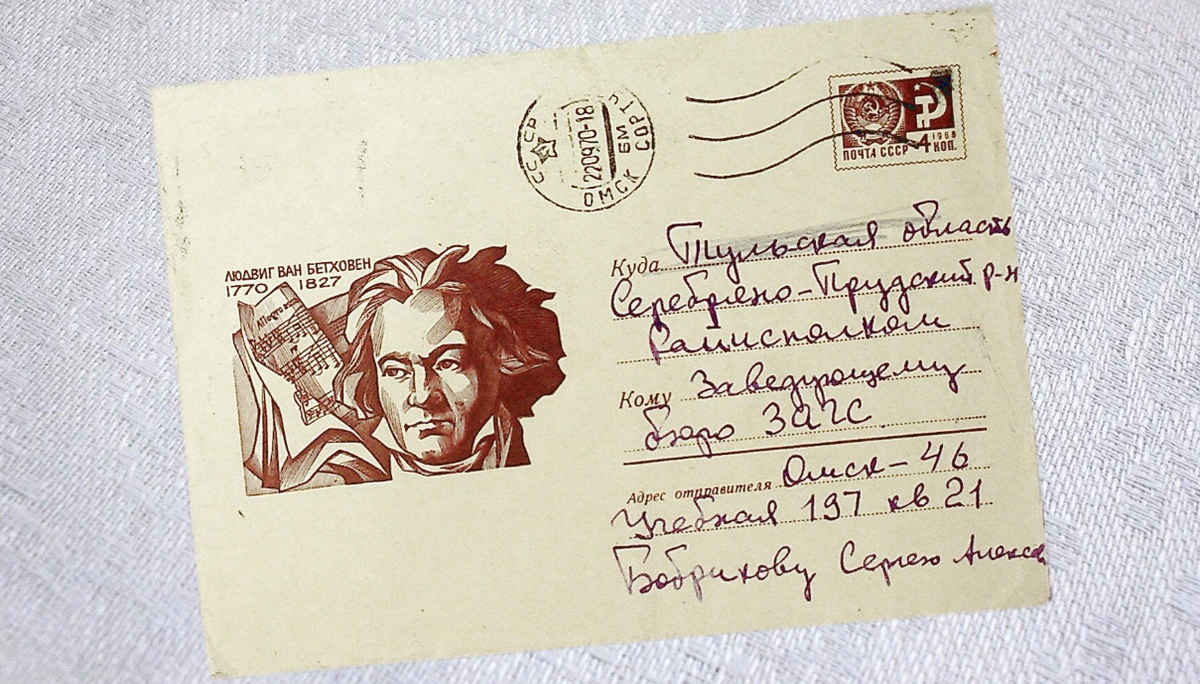 ЛЮДВИГ ВАН БЕТХОВЕН
1770 1827
СССР
220970-18
БМ
ОМСК СОРТ
ПОЧТА СССР
1966
4 КОП.
Куда Тульская область
Серебряно-Прудский р-н
райисполком
Кому Заведующему
бюро ЗАГС
Адрес отправителя Омск-46
Учебная 197 кв 21
Бобрикову Сергею Алексе